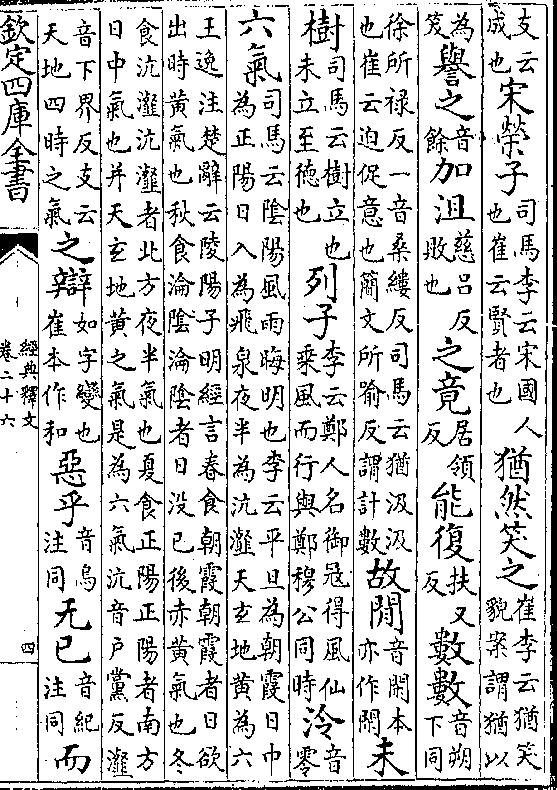 支云成也宋榮子司馬李云宋國人也崔云賢者也猶然笑之崔李云猶笑貌案謂猶以
為笑譽之音餘加沮慈呂反敗也之竟居領反能復扶又反數數音朔下同
徐所禄反一音桑縷反司馬云猶汲汲也崔云迫促意也簡文所喻反謂計數故閒音閑本亦作閑未
樹司馬云樹立也未立至德也列子李云鄭人名御冦得風仙乘風而行與鄭穆公同時泠音零
六氣司馬云陰陽風雨晦明也李云平旦為朝霞日中為正陽日入為飛泉夜半為沆瀣天玄地黄為六
王逸注楚辭云陵陽子明經言春食朝霞朝霞者日欲出時黄氣也秋食淪陰淪陰者日没已後赤黄氣也冬
食沆瀣沆瀣者北方夜半氣也夏食正陽正陽者南方日中氣也并天玄地黄之氣是為六氣沆音户黨反瀣
音下界反支云天地四時之氣之辯如字變也崔本作和惡乎音烏注同无已音紀注同而
欽定四庫全書
經典釋文
卷二十六
四